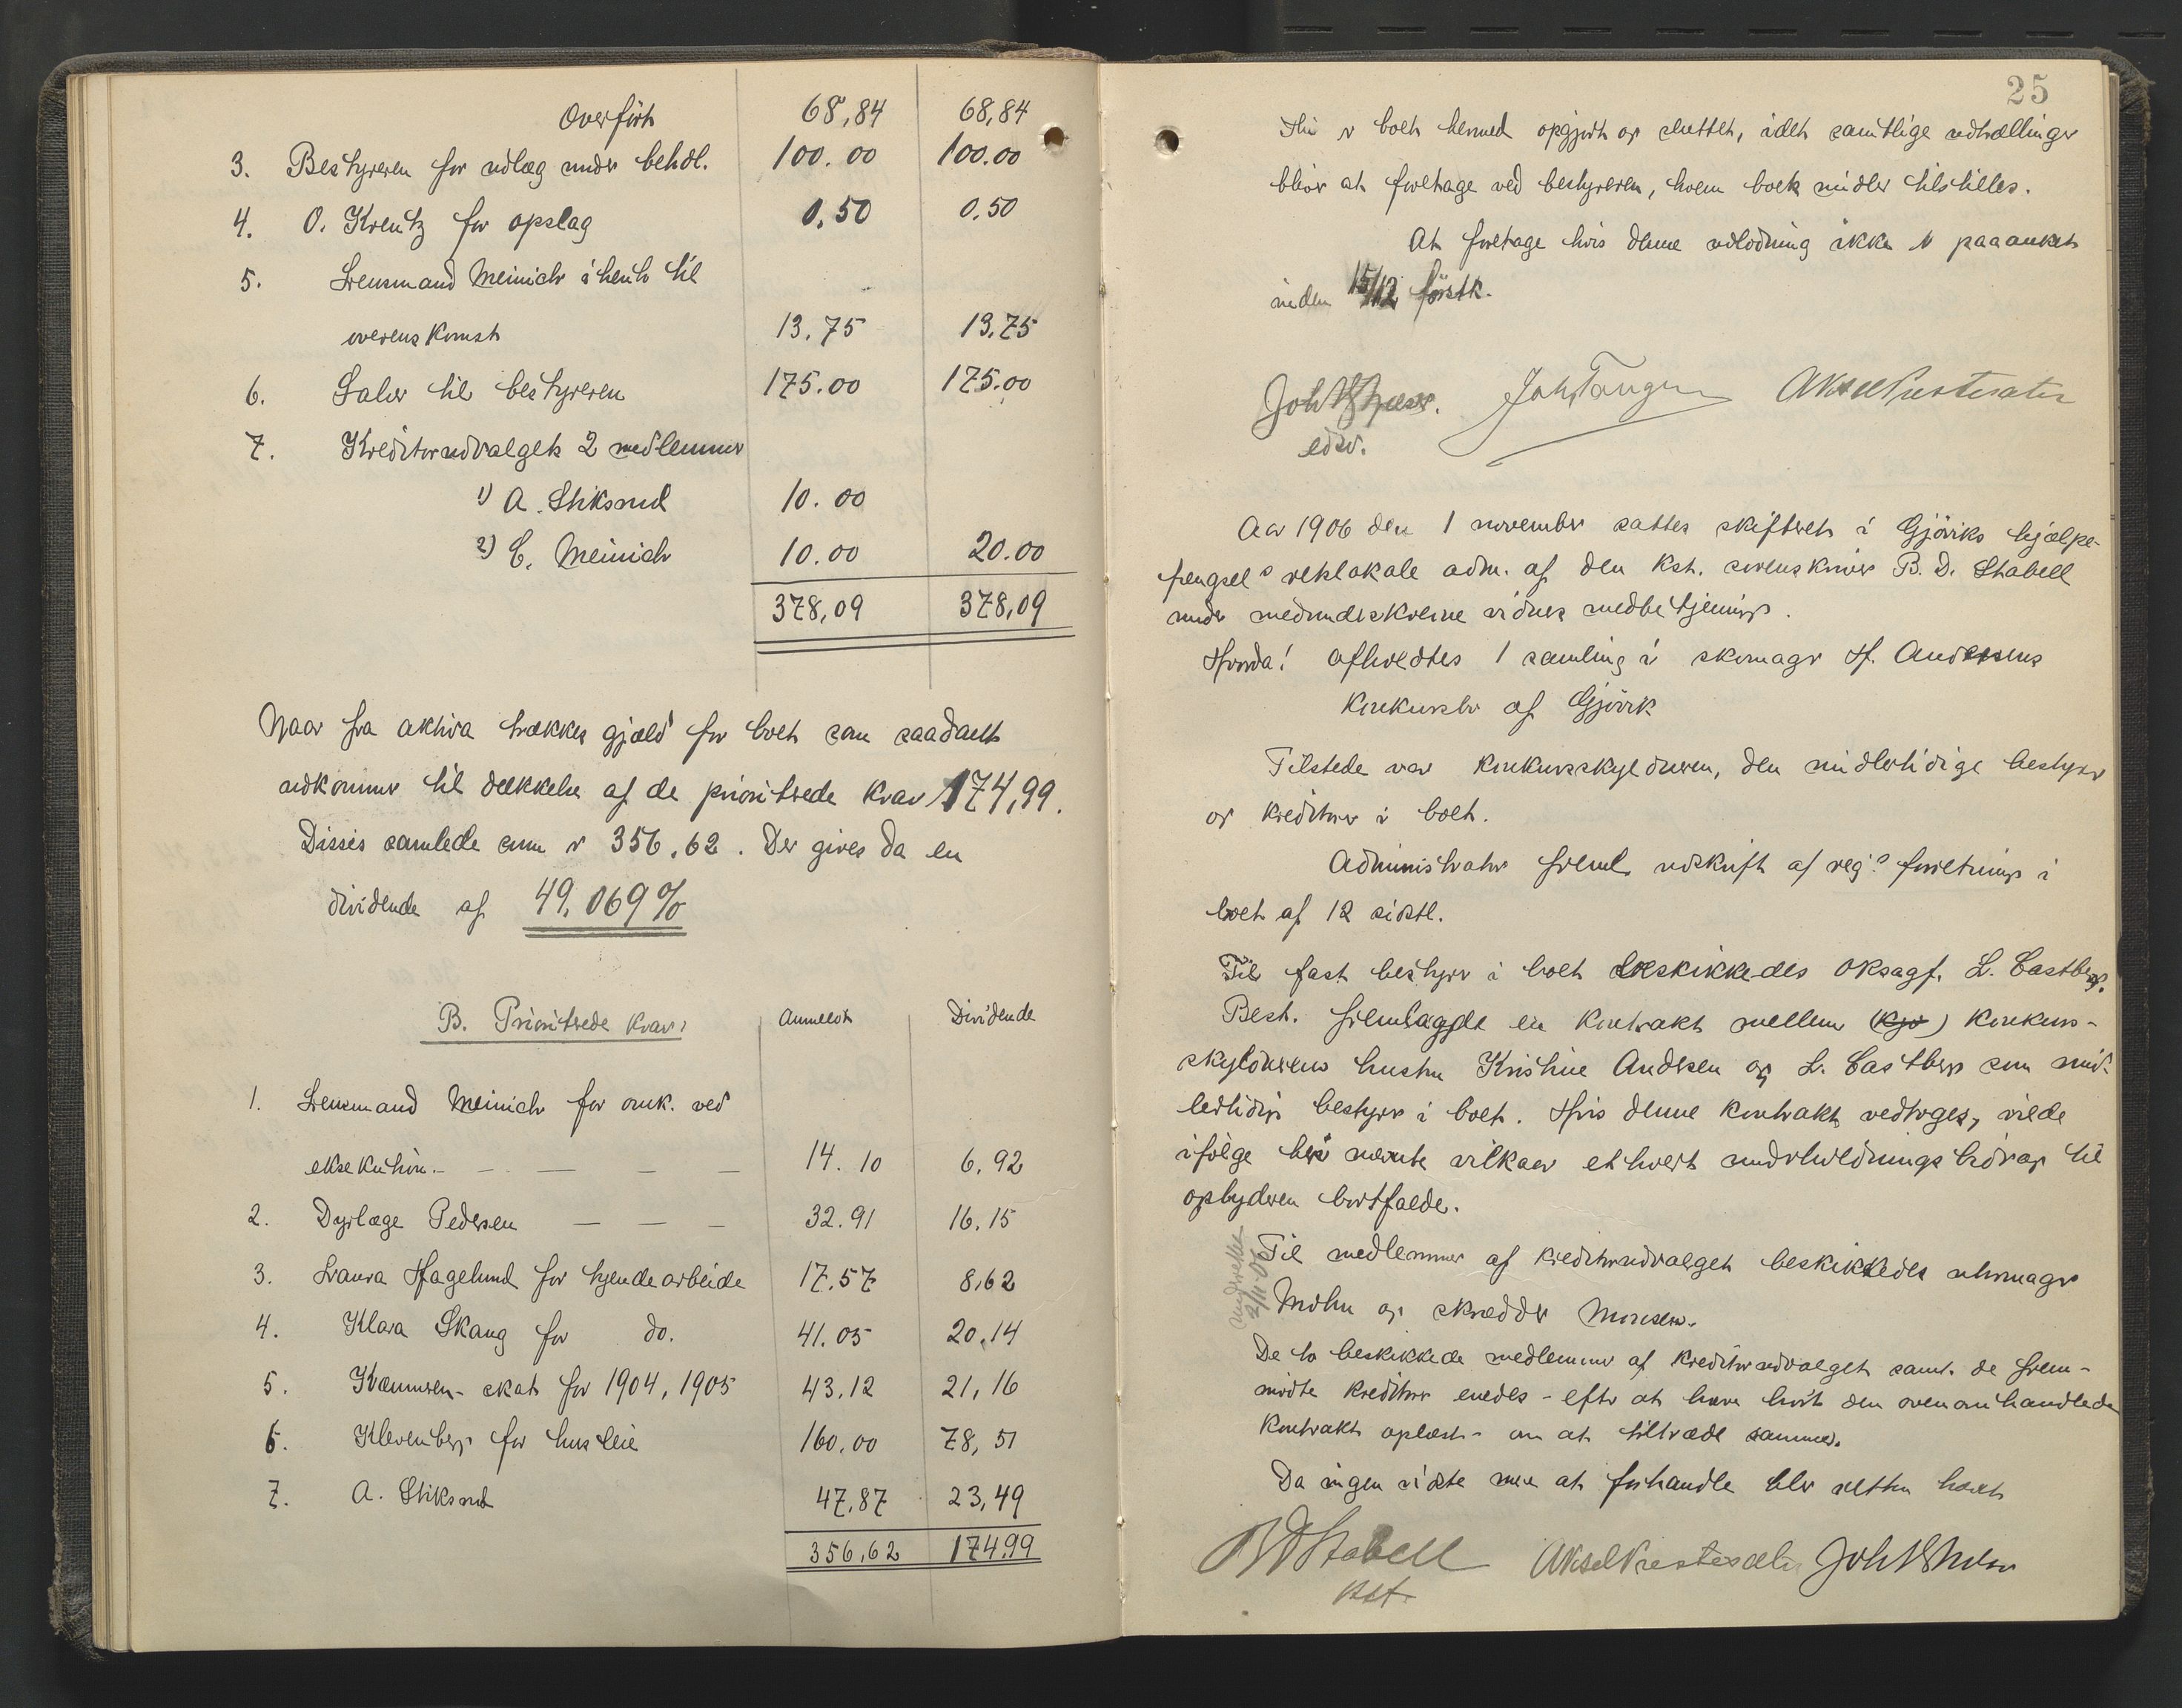 Overført 68,84 68,84
3. Bestyreren for udlæg under behdl. 100.00 100.00
4. O. Kreutz for opslag 0,50 0,50
5. Lensmand Meinich i henh til
overenskomst 13,75 13,75
6. Salær til bestyreren 175.00 175.00
7. Kreditorudvalgets 2 medlemmer
1) A. Stiksrud 10.00
2) C. Meinich 10.00 20.00
378,09 378,09
Naar fra aktiva trækkes gjæld for boet som saadant
udkommer til dækkelse af de prioriterede krav 174,99.
Disses samlede sum er 356,62. Der gives da en
dividende af 49,069%
B. Prioriterede krav: Anmeldt Dividende
1. Lensmand Meinich for omk. ved
eksekution. 14.10 6,92
2. Dyrlæge Pedersen 32.91 16.15
3. Laura Hagelund for syendearbeide 17.57 8,62
4. Klara Skaug for do. 41.05 20.14
5. Kæmneren - skat for 1904, 1905 43.12 21,16
6. Klevenberg for husleie 160,00 78,51
7. A. Stiksrud 47,87 23,49
356,62 174,99
25
Thi er boet hermed opgjort og sluttet, idet samtlige udtællinger
blir at foretage ved bestyreren, hvem boets midler tilstilles.
At foretage hvis denne udlodning ikke er paaanket
inden 15/12 førstk.
Joh Tangen Aksel Prestesæter
edsv.
Aar 1906 den 1 november sattes skifteret i Gjøviks hjælpe-
fengsels retslokale adm. af den kst. sorenskriver B. D. Stabell
under medunderskrevne vidnes medbetjening.
Hvorda! afholdtes 1 samling i skomager H. Andersens
konkursbo af Gjøvik
Tilstede var konkursskylderen, den midlertidige bestyrer
og kreditorer i boet.
Administrator freml. udskrift af reg.s forretning i
boet af 12 sidstl.
Til fast bestyrer i boet beskikkedes oksagf. L. Castberg.
Best. fremlagde en kontrakt mellem (kjø) konkurs-
skyldnerens hustru Kristine Andersen og L. Castberg som mid-
lertidig bestyrer i boet. Hvis denne kontrakt vedtoges, vilde
ifølge heri nævnte vilkaar ethvert underholdningsbidrag til
opbyderen bortfalde.
Til medlemmer af kreditorudvalget beskikkedes uhrmager
Mohn og skrædder Monsen.
2/11-06
De to beskikkede medlemmer af kreditorudvalget samt. de frem-
mødte kreditorer enedes - efter at have hørt den ovenomhandlede
kontrakt oplæst - om at tiltræde samme.
Da ingen vidste mere at forhandle blev retten hævet
B D Stabell Aksel Prestesæter
kst.